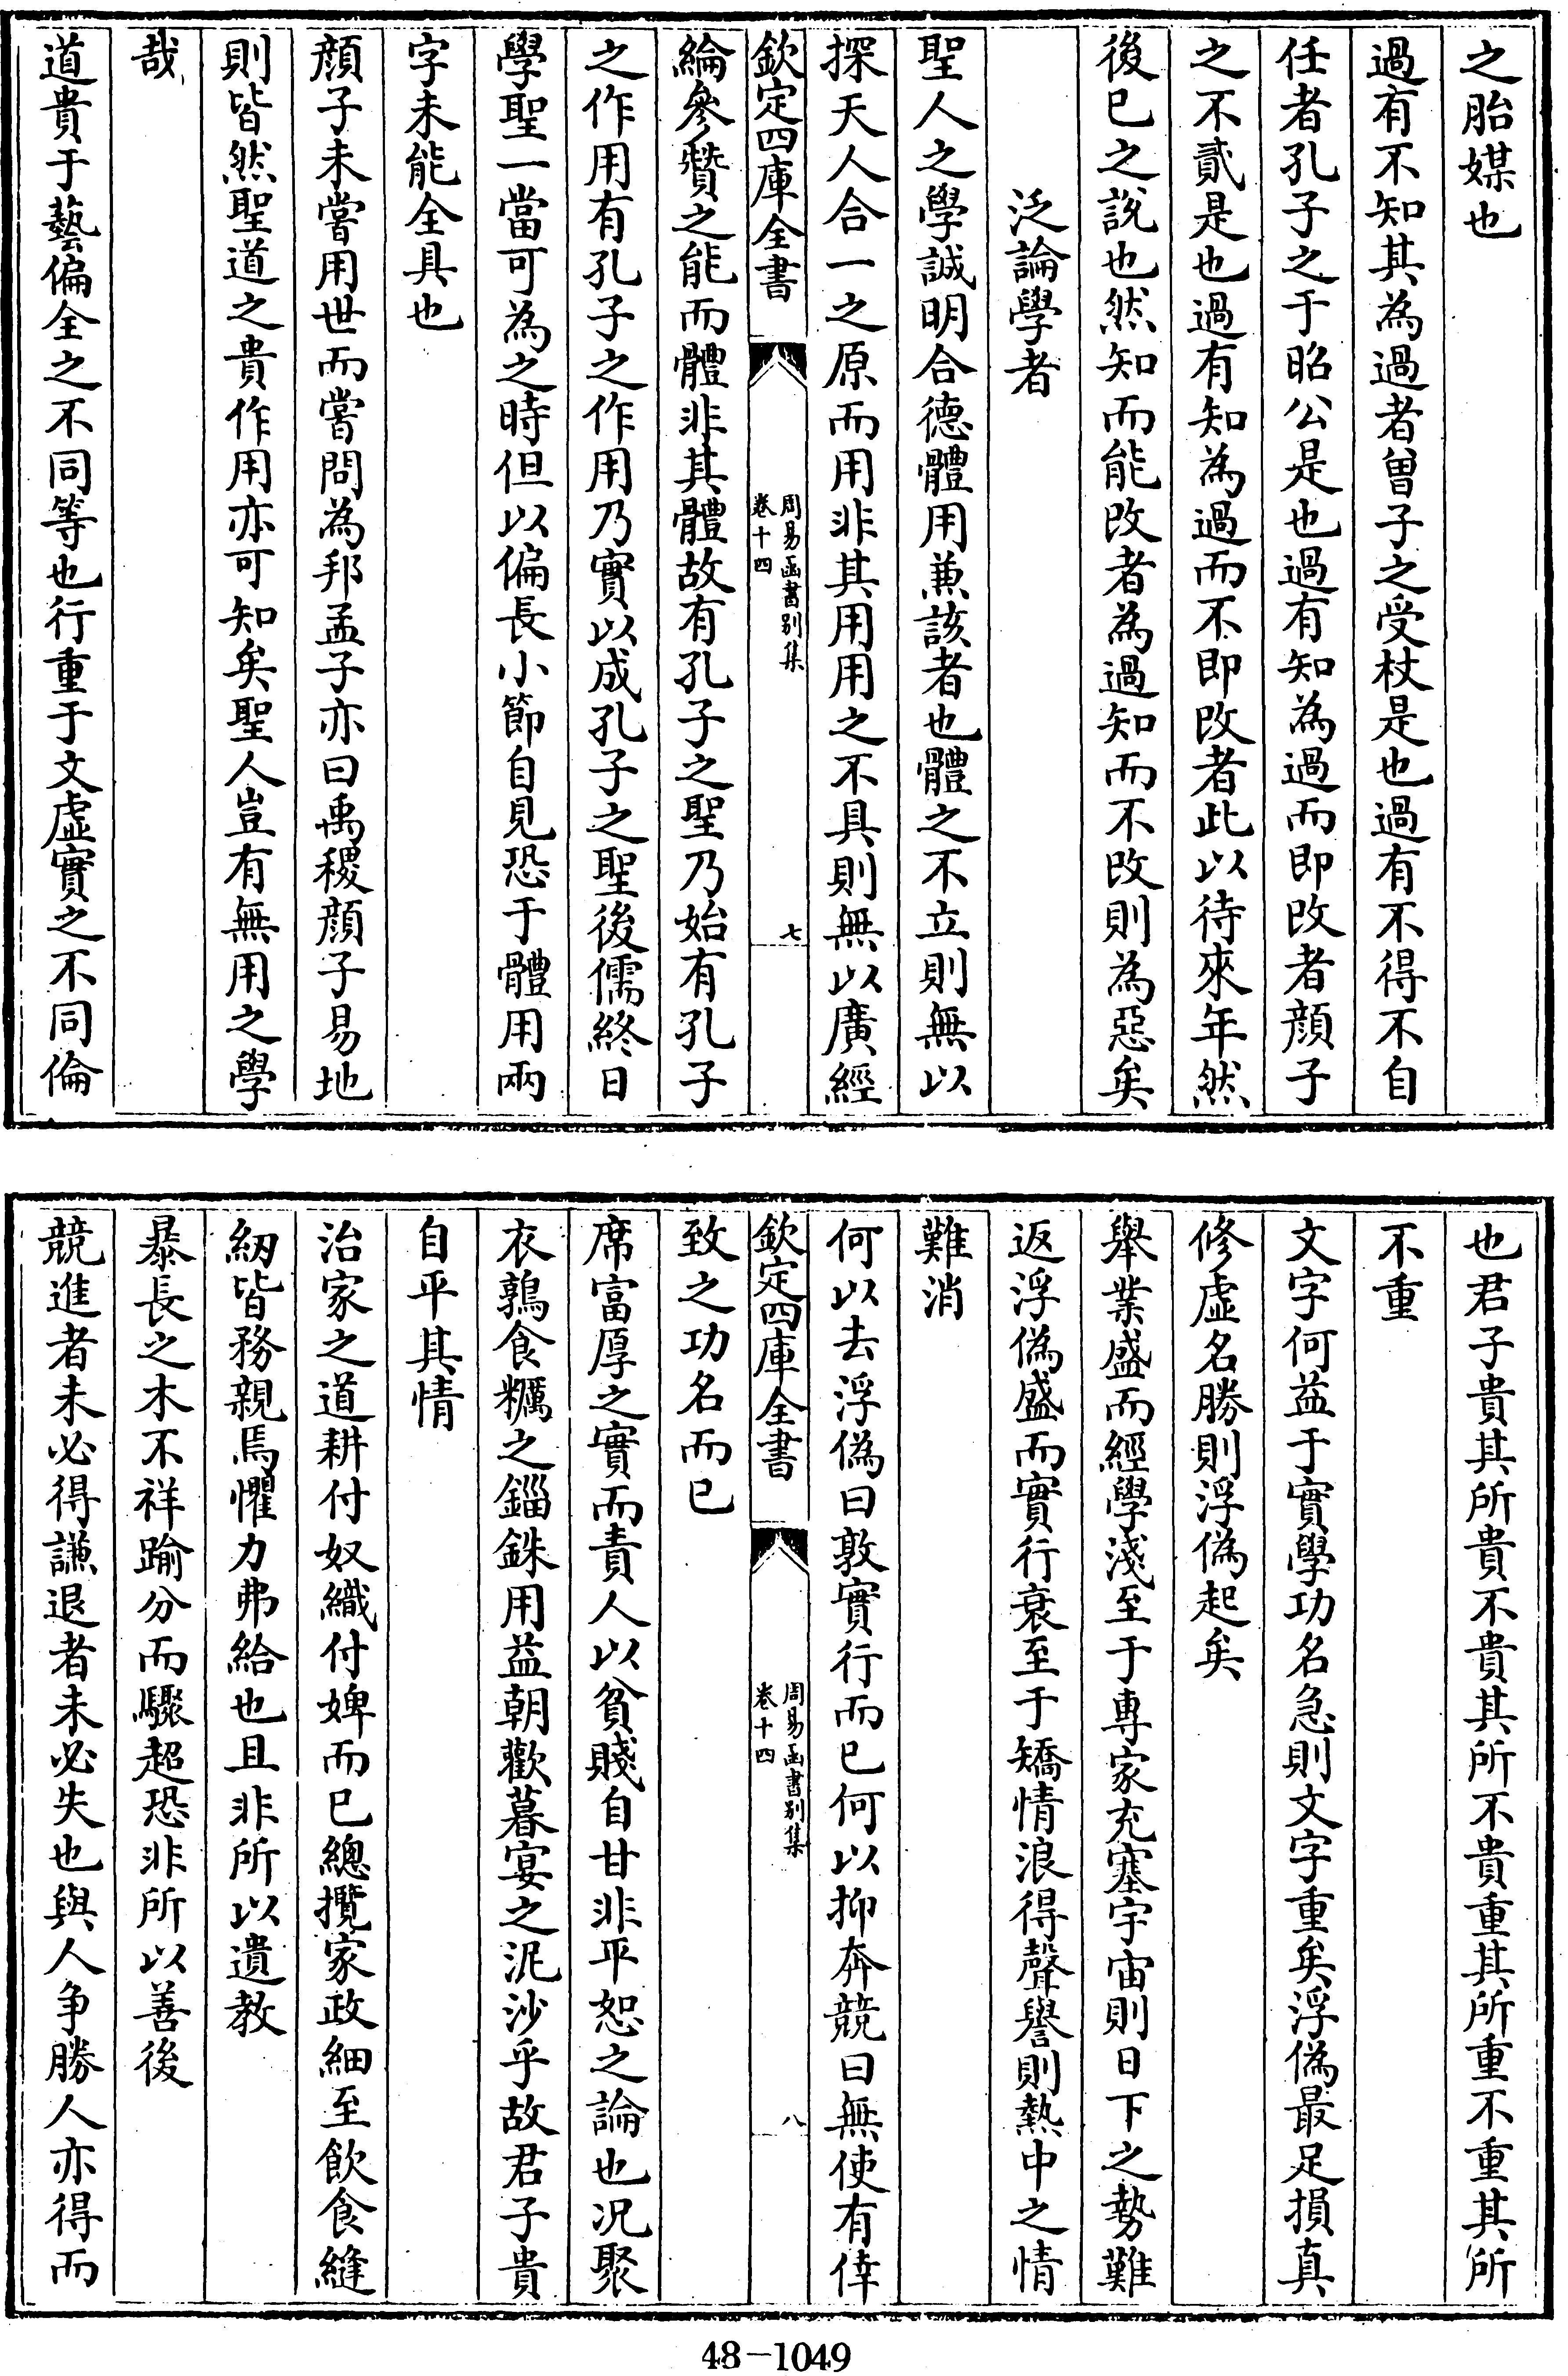 之胎媒也
過有不知其為過者曽子之受杖是也過有不得不自
任者孔子之于昭公是也過有知為過而即改者顔子
之不貳是也過有知為過而不即改者此以待來年然
後已之說也然知而能改者為過知而不改則為惡矣
泛論學者
聖人之學誠明合德體用兼該者也體之不立則無以
探天人合一之原而用非其用用之不具則無以廣經
欽定四庫全書
周易函書别集
卷十四
七
綸參贊之能而體非其體故有孔子之聖乃始有孔子
之作用有孔子之作用乃實以成孔子之聖後儒終日
學聖一當可為之時但以偏長小節自見恐于體用兩
字未能全具也
顔子未嘗用世而嘗問為邦孟子亦曰禹稷顔子易地
則皆然聖道之貴作用亦可知矣聖人豈有無用之學
哉
道貴于藝偏全之不同等也行重于文虛實之不同倫
也君子貴其所貴不貴其所不貴重其所重不重其所
不重
文字何益于實學功名急則文字重矣浮偽最足損真
修虛名勝則浮偽起矣
舉業盛而經學淺至于專家充塞宇宙則日下之勢難
返浮偽盛而實行衰至于矯情浪得聲譽則熱中之情
難消
何以去浮偽曰敦實行而已何以抑奔競曰無使有倖
欽定四庫全書
周易函書别集
卷十四
八
致之功名而已
席富厚之實而責人以貧賤自甘非平恕之論也况聚
衣鶉食糲之錙銖用益朝歡暮宴之泥沙乎故君子貴
自平其情
治家之道耕付奴織付婢而已總攬家政細至飲食縫
紉皆務親焉懼力弗給也且非所以遺教
暴長之木不祥踰分而驟超恐非所以善後
競進者未必得謙退者未必失也與人争勝人亦得而
48-1049